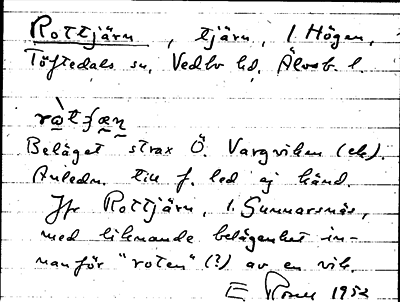 Rottjärn, tjärn, i Högen,
Töftedals sn, Vedbo hd, Älvsb. l.
Beläget strax Ö. Vargviken (ek).
Anledn. till f. led ej känd.
Jfr Rottjärn, i Gunnarsnäs,
med liknande belägenhet in-
nanför "roten" (?) av en vik.
E 1952